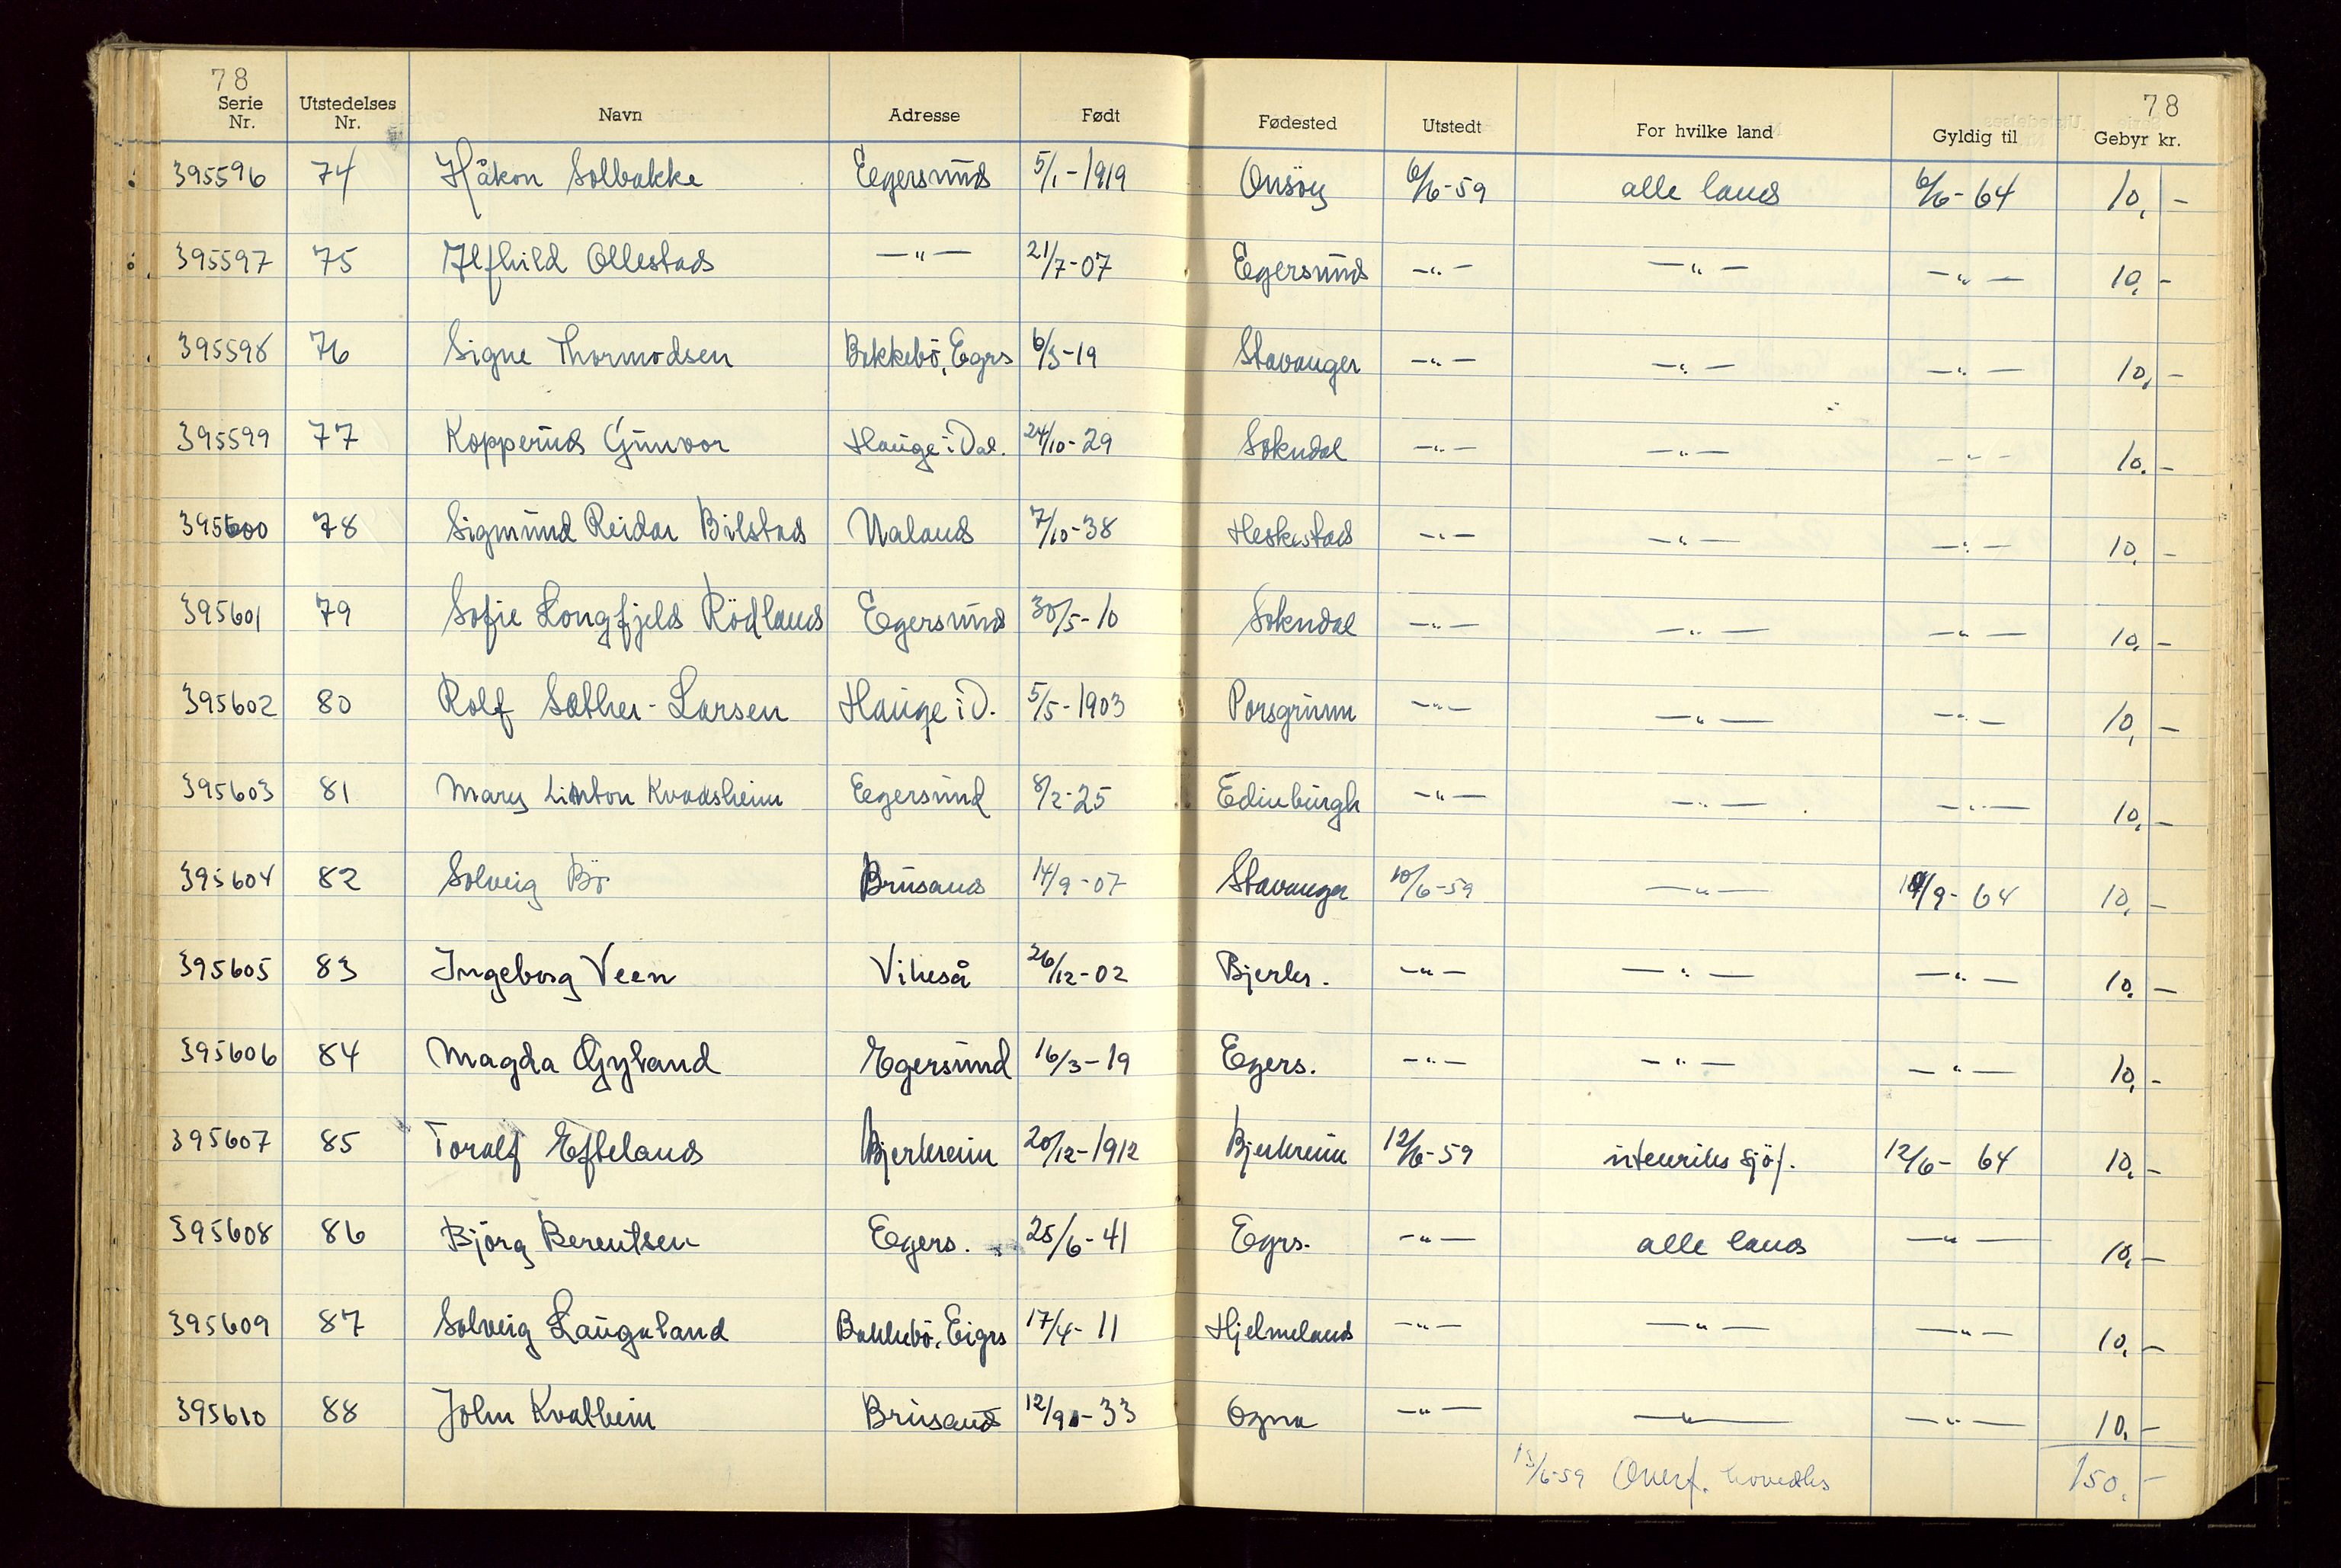 78 78
Serie Nr. Utstedelses Nr. Navn Adresse Født Fødested Utstedt For hvilke land Gyldig til Gebyr kr.
395596 74 Håkon Solbakke Egersund 5/1-1919 Onsöy 6/6-59 alle land 6/6-64 10,-
395597 75 Alfhild Ollestad —„— 21/7-07 Egersund —„— —„— —„— 10,-
395598 76 Signe Thormodsen Bekkebö, Egrs 6/3-19 Stavanger —„— —„— —„— 10,-
395599 77 Kopperud Gunvor Hauge i Dal. 24/10-29 Sokndal —„— —„— —„— 10.-
395600 78 Sigmund Reidar Bilstad Ualand 7/10-38 Heskestad —„— —„— —„— 10,-
395601 79 Sofie Longfjeld Rödland Egersund 30/5-10 Sokndal —„— —„— —„— 10,-
395602 80 Rolf Sæther-Larsen Hauge i D. 5/5-1903 Porsgrunn —„— —„— —„— 10,-
395603 81 Mary Linton Kvadsheim Egersund 8/2-25 Edinburgh —„— —„— —„— 10,-
395604 82 Solveig Bö Brusand 14/9-07 Stavanger 10/6-59 —„— 10/9-64 10,-
395605 83 Ingeborg Veen Vikeså 26/12-02 Bjerkr. —„— —„— —„— 10.-
395606 84 Magda Gyland Egersund 16/3-19 Egers. —„— —„— —„— 10,-
395607 85 Toralf Efteland Bjerkreim 20/12-1912 Bjerkreim 12/6-59 utenriks sjöf. 12/6-64 10,-
395608 86 Björg Berentsen Egers. 25/6-41 Egrs. —„— alle land —„— 10,-
395609 87 Solveig Laugaland Bekkebö, Eigrs 17/4-11 Hjelmeland —„— —„— —„— 10,-
395610 88 John Kvalheim Brusand 12/9-33 Ogna —„— —„— —„— 10,-
15/6-59 Overf. 150,-